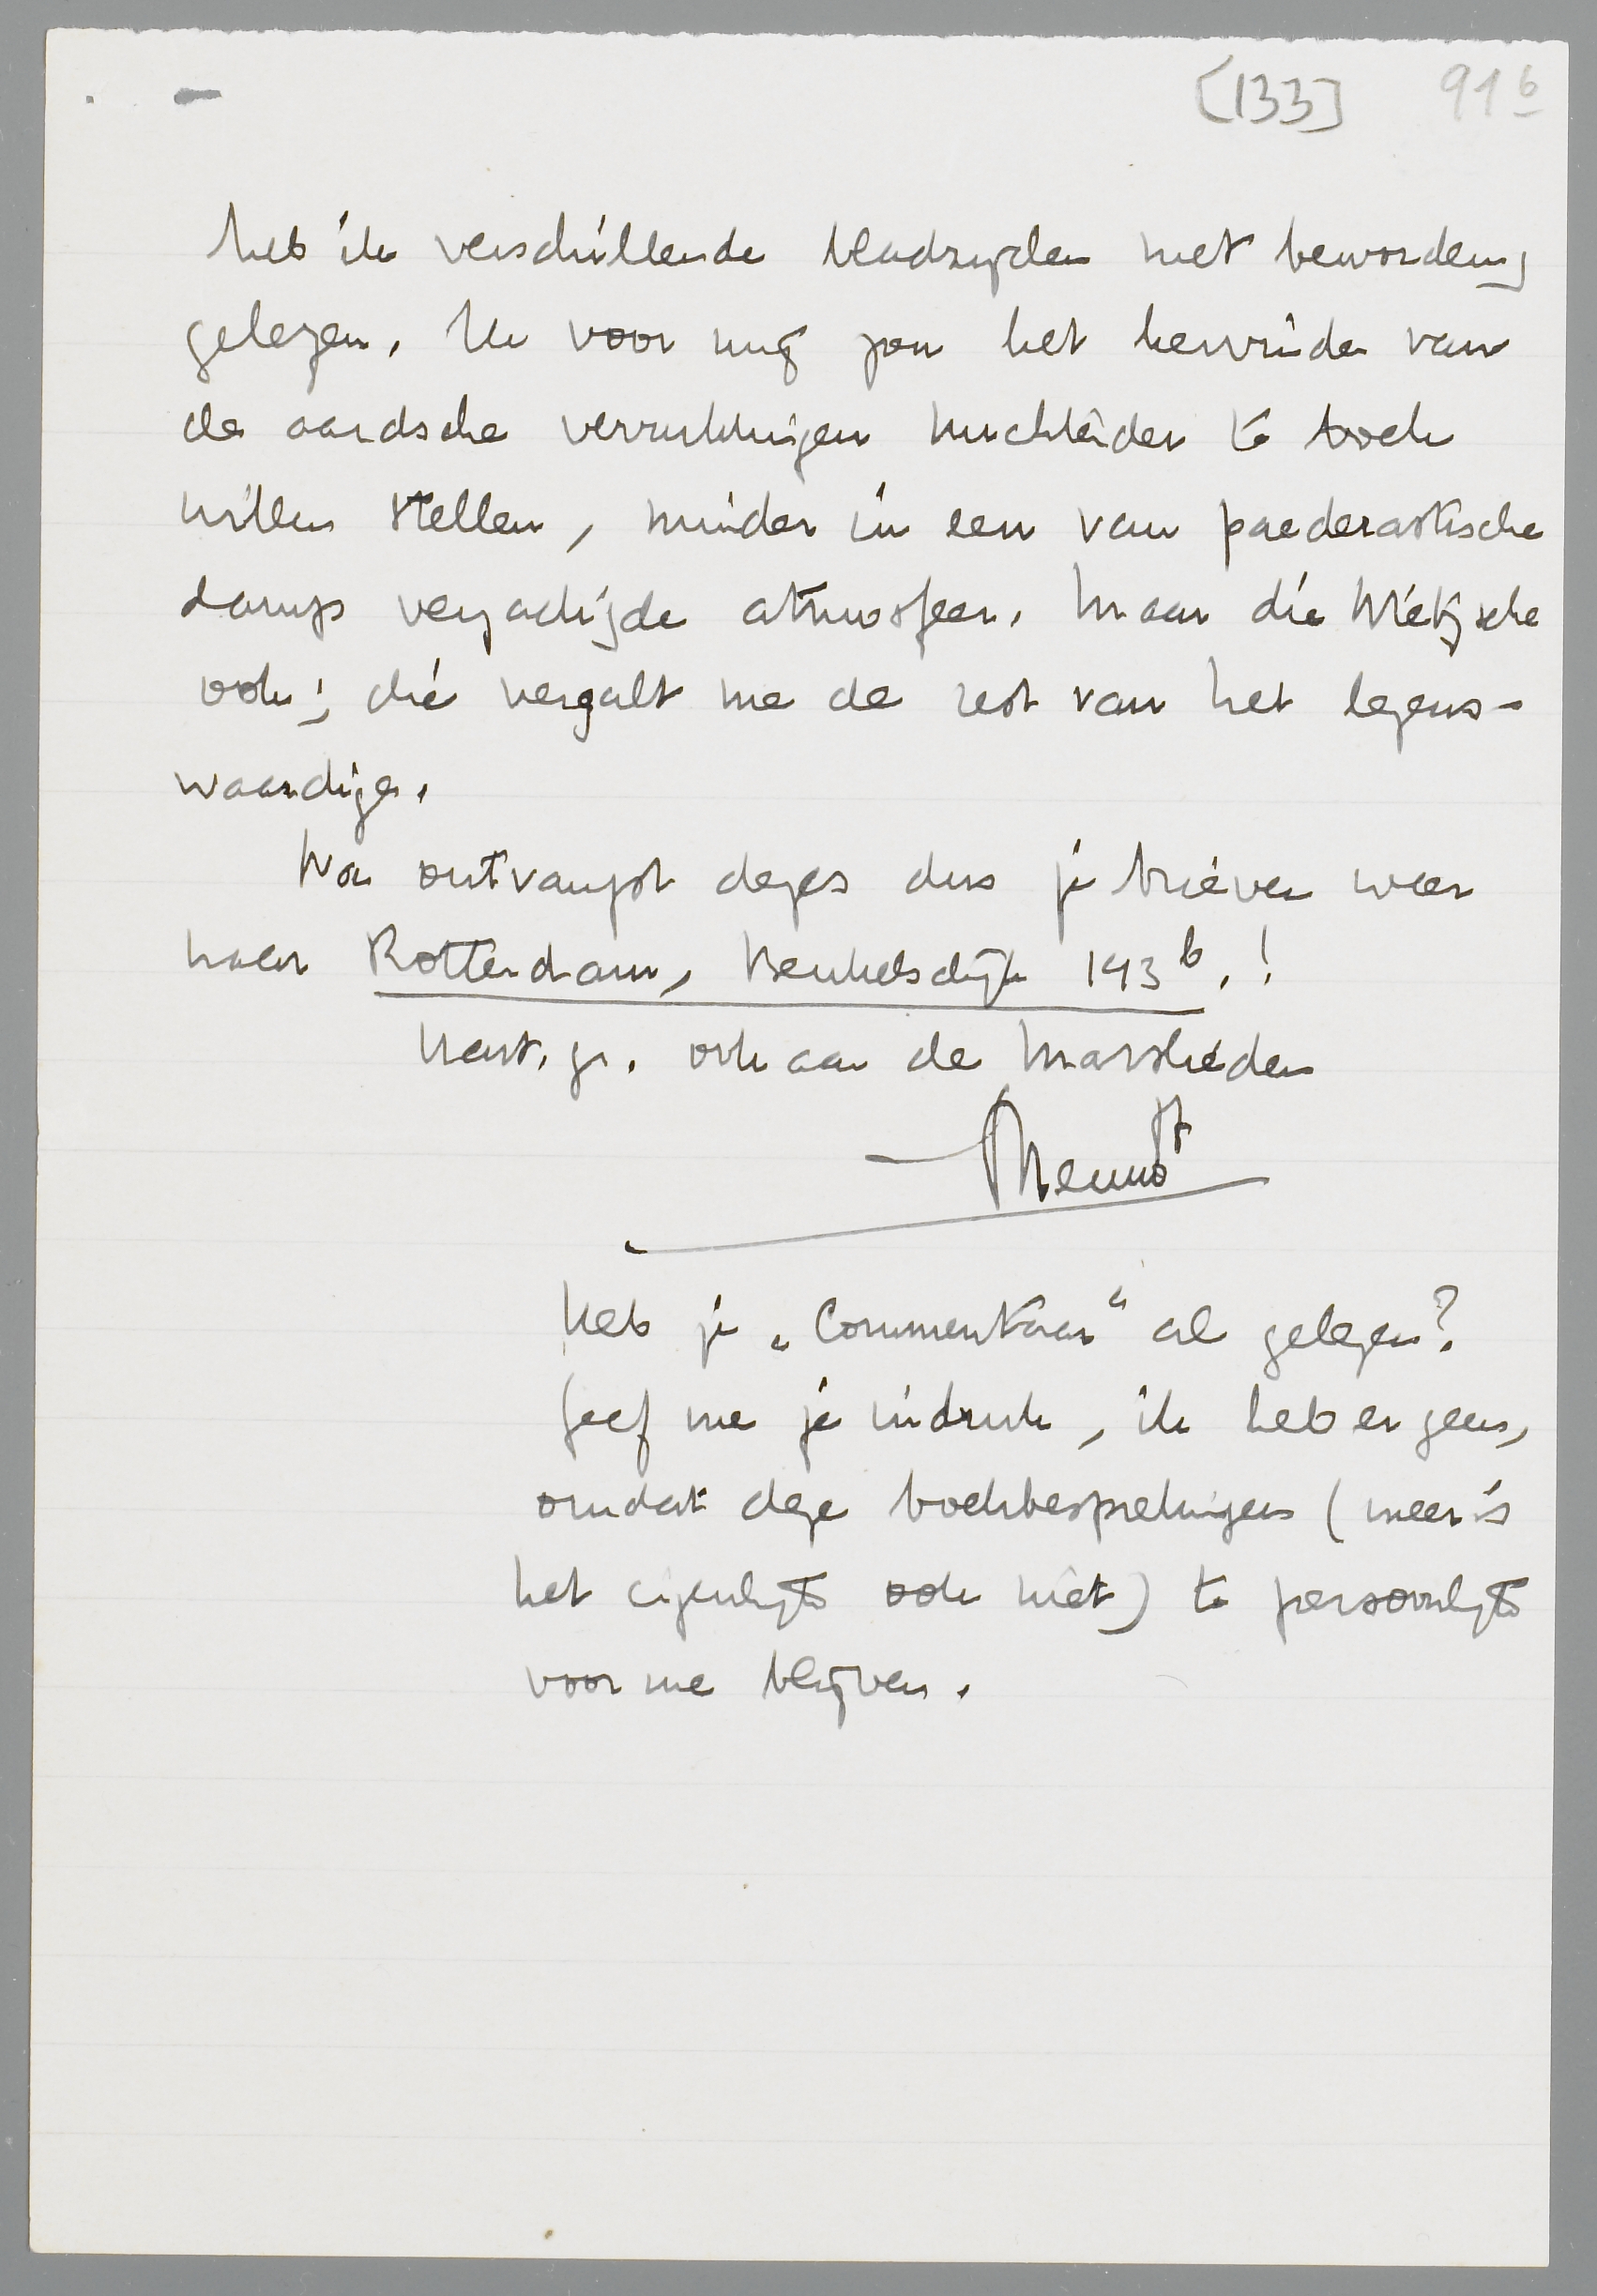 [133] 91b
heb ik verschillende bladzijden met bewondering
gelezen. Ik voor mij zou het hervinden van
de aardsche verrukkingen nuchterder te boek
willen stellen, minder in een van paederastische
damp verzadigde atmosfeer. Maar die Nietzsche
ook; dié vergalt me de rest van het lezens-
waardige.
Na ontvangst dezes dus je brieven weer
naar Rotterdam, Heukelsdijk 143b.!
Hart. gr. ook aan de Marslieden
Menno tB
Heb je „Commentaar" al gelezen?
Geef me je indruk, ik heb er geen,
omdat deze boekbesprekingen (meer is
het eigenlijk ook niet) te persoonlijk
voor me blijven.